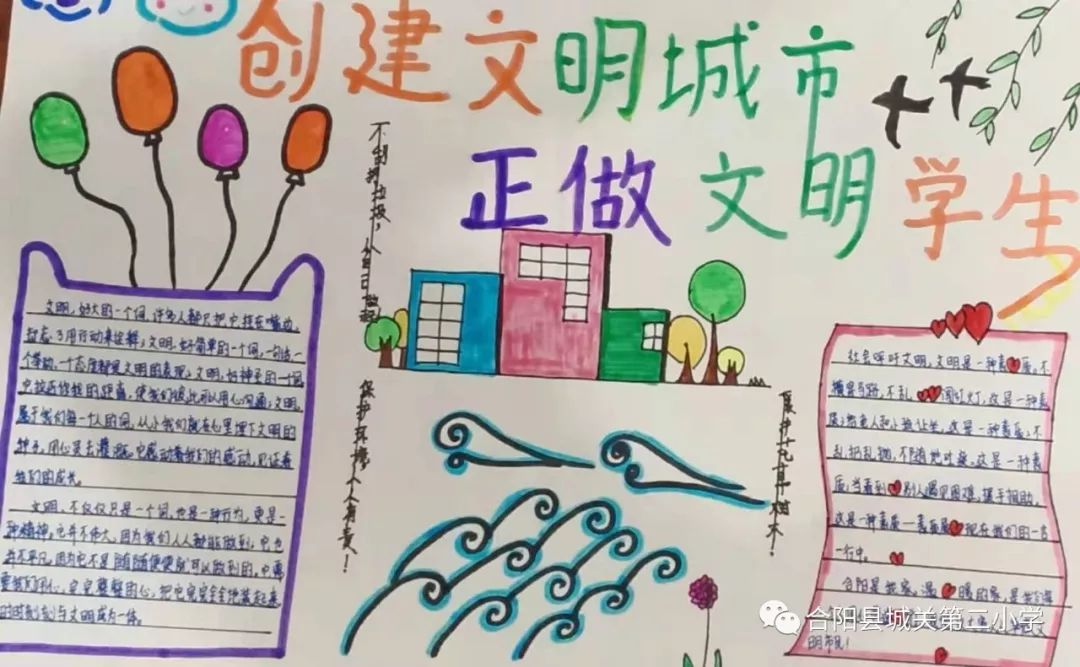 创建文明城市
正做文明学生
文明，好大的一个词，许多人都只把它挂在嘴边，
却忘了用行动来诠释；文明，好简单的一个词，一句话一
个举动，一个态度都是文明的表现；文明，好神圣的一个词，
它拉近你我的距离，使我们彼此可以用心沟通；文明，
属于我们每一个人的词，从小我们就在心里埋下文明的
种子，用心灵去灌溉，它感动着我们的感动，见证着
我们的成长。
文明，不仅仅只是一个词，也是一种行为，更是一
种精神。它并不伟大，因为我们人人都能做到，它也
并不平凡，因为它不是随随便便就可以做到的，它需
要我们用心，完完整整的心，把它完完全全地装起来，
时时刻刻与文明成为一体。
保护环境，人人有责！
社会呼吁文明，文明是一种素质，不
横穿马路，不乱闯红灯，这是一种素
质；给老人和小孩让坐，这是一种素质；不
乱扔乱物，不随地吐痰，这是一种素
质；当看到别人遇见困难，援手相助，
这是一种素质—素质展现在我们的一言
一行中。
合阳是我家，温暖的家，是我们
明市民！
合阳县城关第二小学